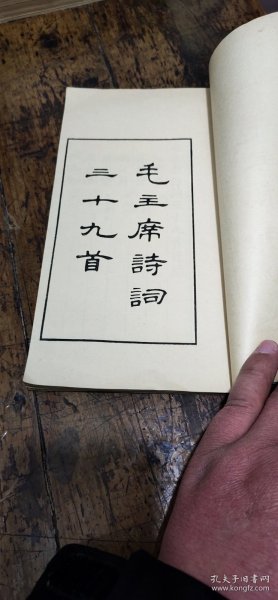 毛主席詩詞
三十九首
孔夫子旧书网
www.kongfz.com